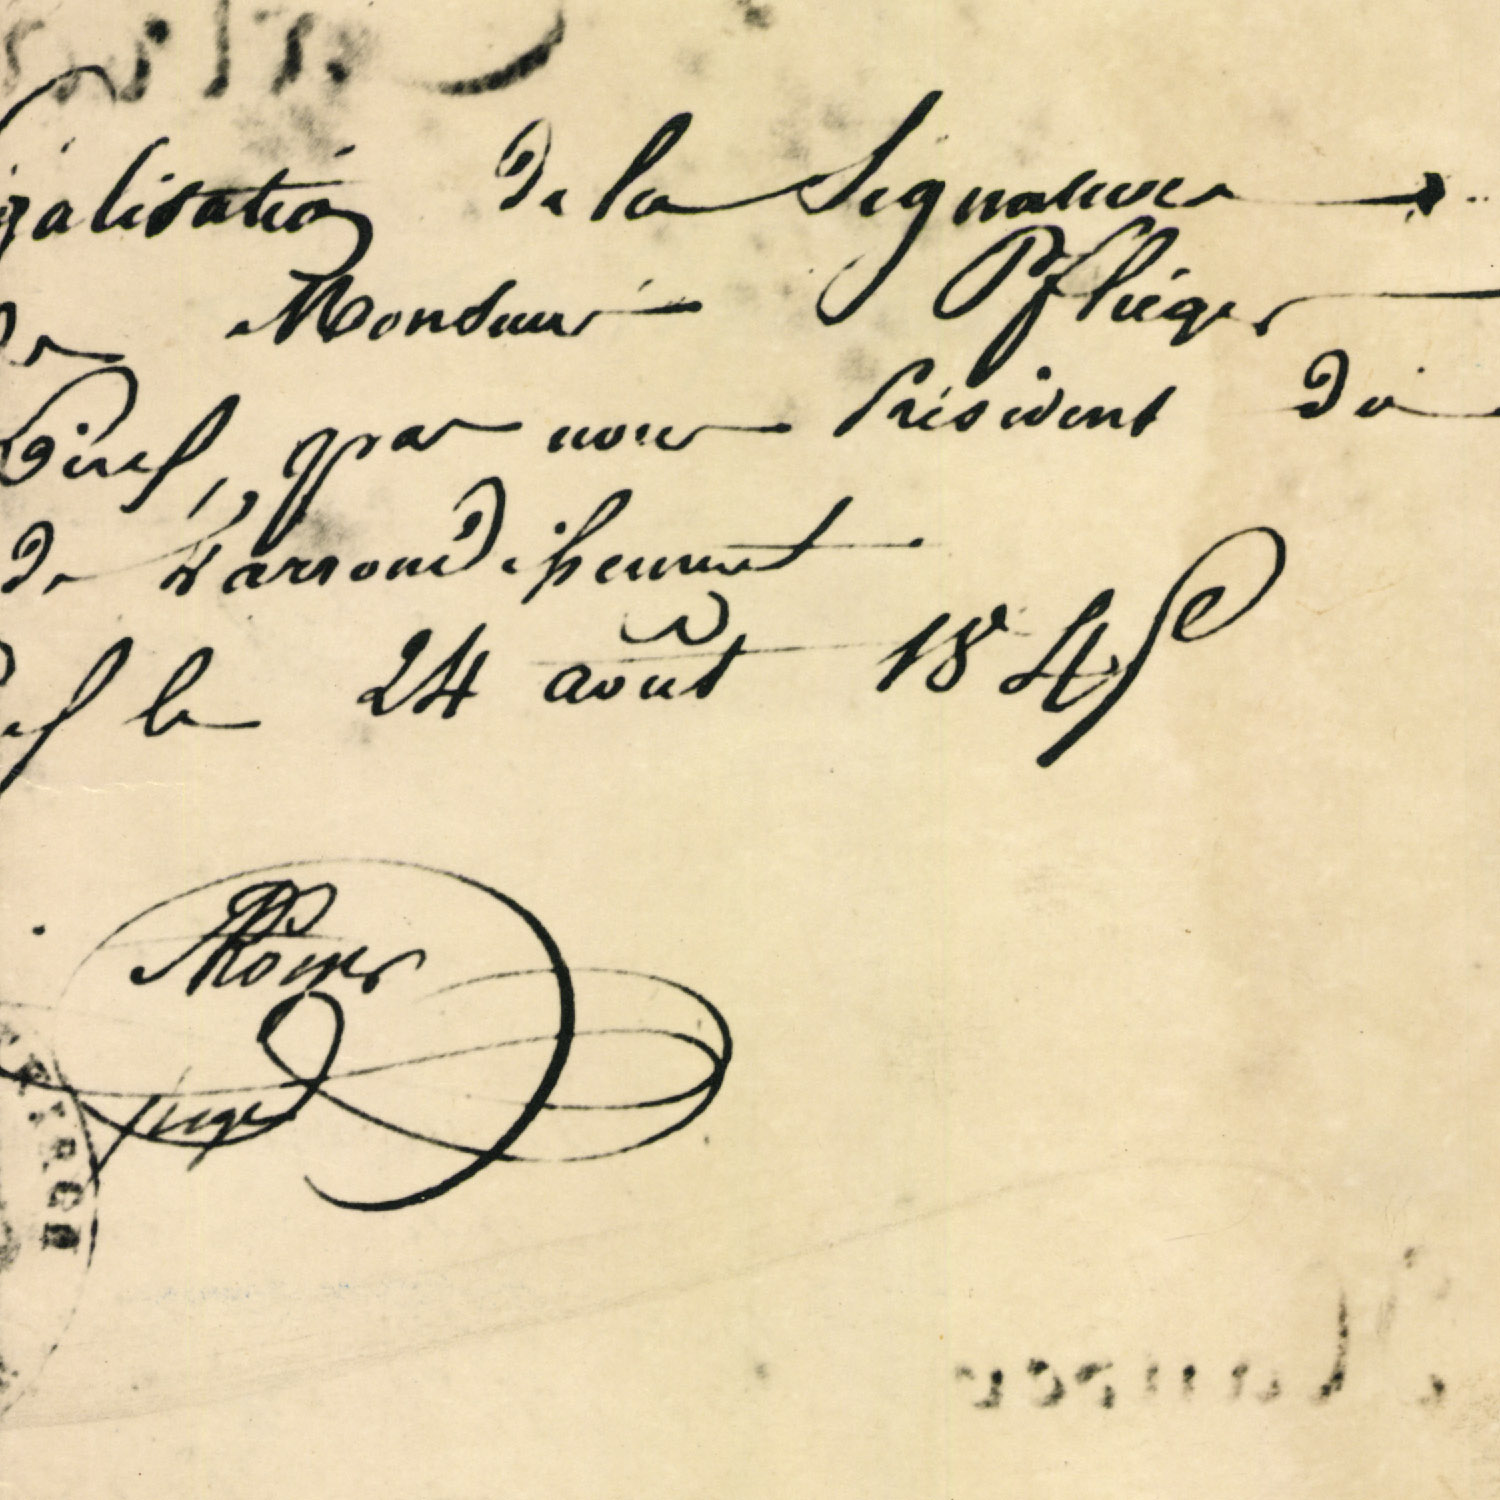 galisation de la Signature
de Monsieur Pflieger
par nous Président du
de l'arrondissement
le 24 août 1845
juge